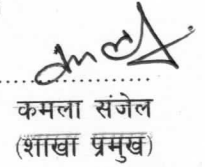 कमला संजेल
(शाखा प्रमुख)